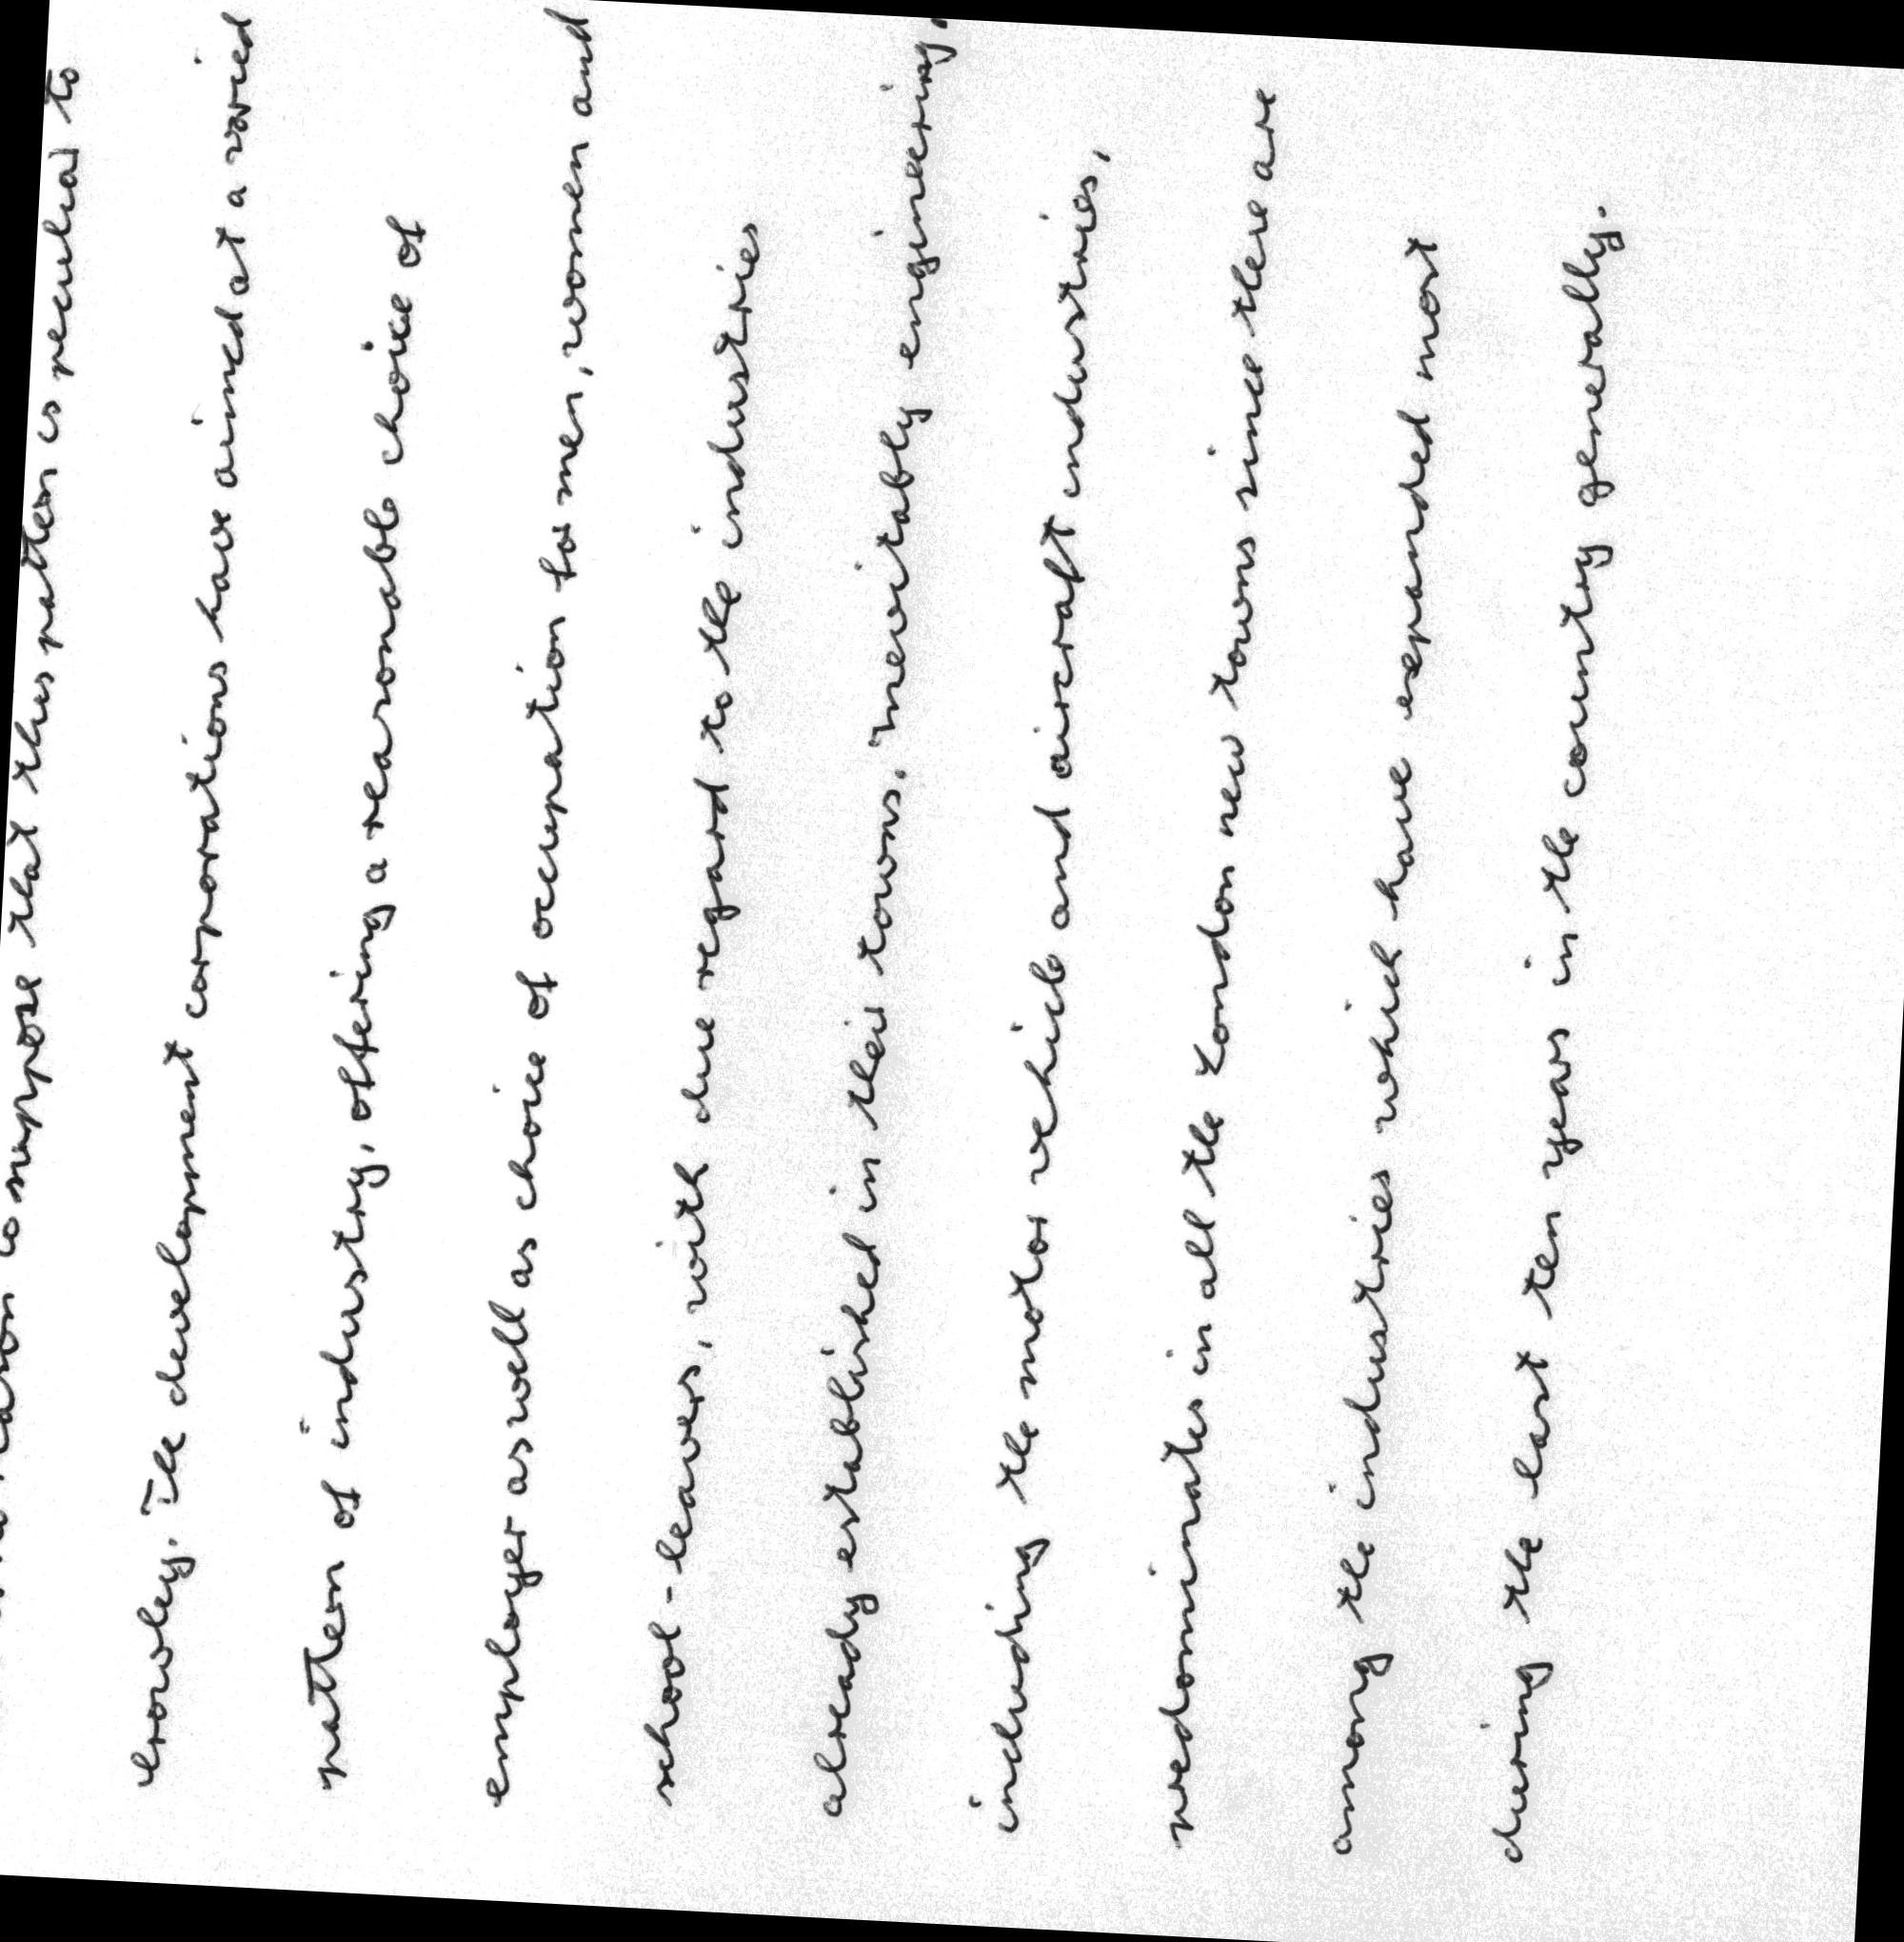 to suppose that this pattern is peculiar to
Crawley. The development corporations have aimed at a varied
pattern of industry, offering a reasonable choice of
employer as well as choice of occupation for men, women and
school-leavers, with due regard to the industries
already established in their towns. Inevitably engineering,
including the motor vehicle and aircraft industries,
predominates in all the London new towns since there are
among the industries which have expanded most
during the last ten years in the country generally.